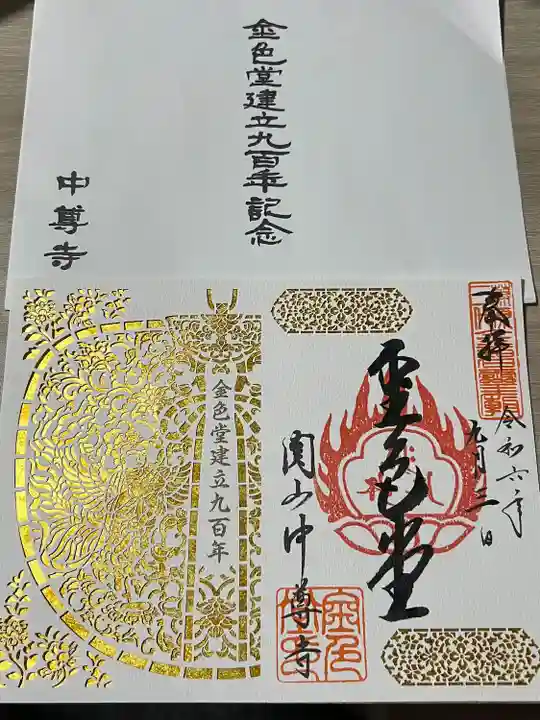 金色堂建立九百年記念
中尊寺
奉拝
令和六年
九月三日
金色堂
関山中尊寺
金色堂建立九百年